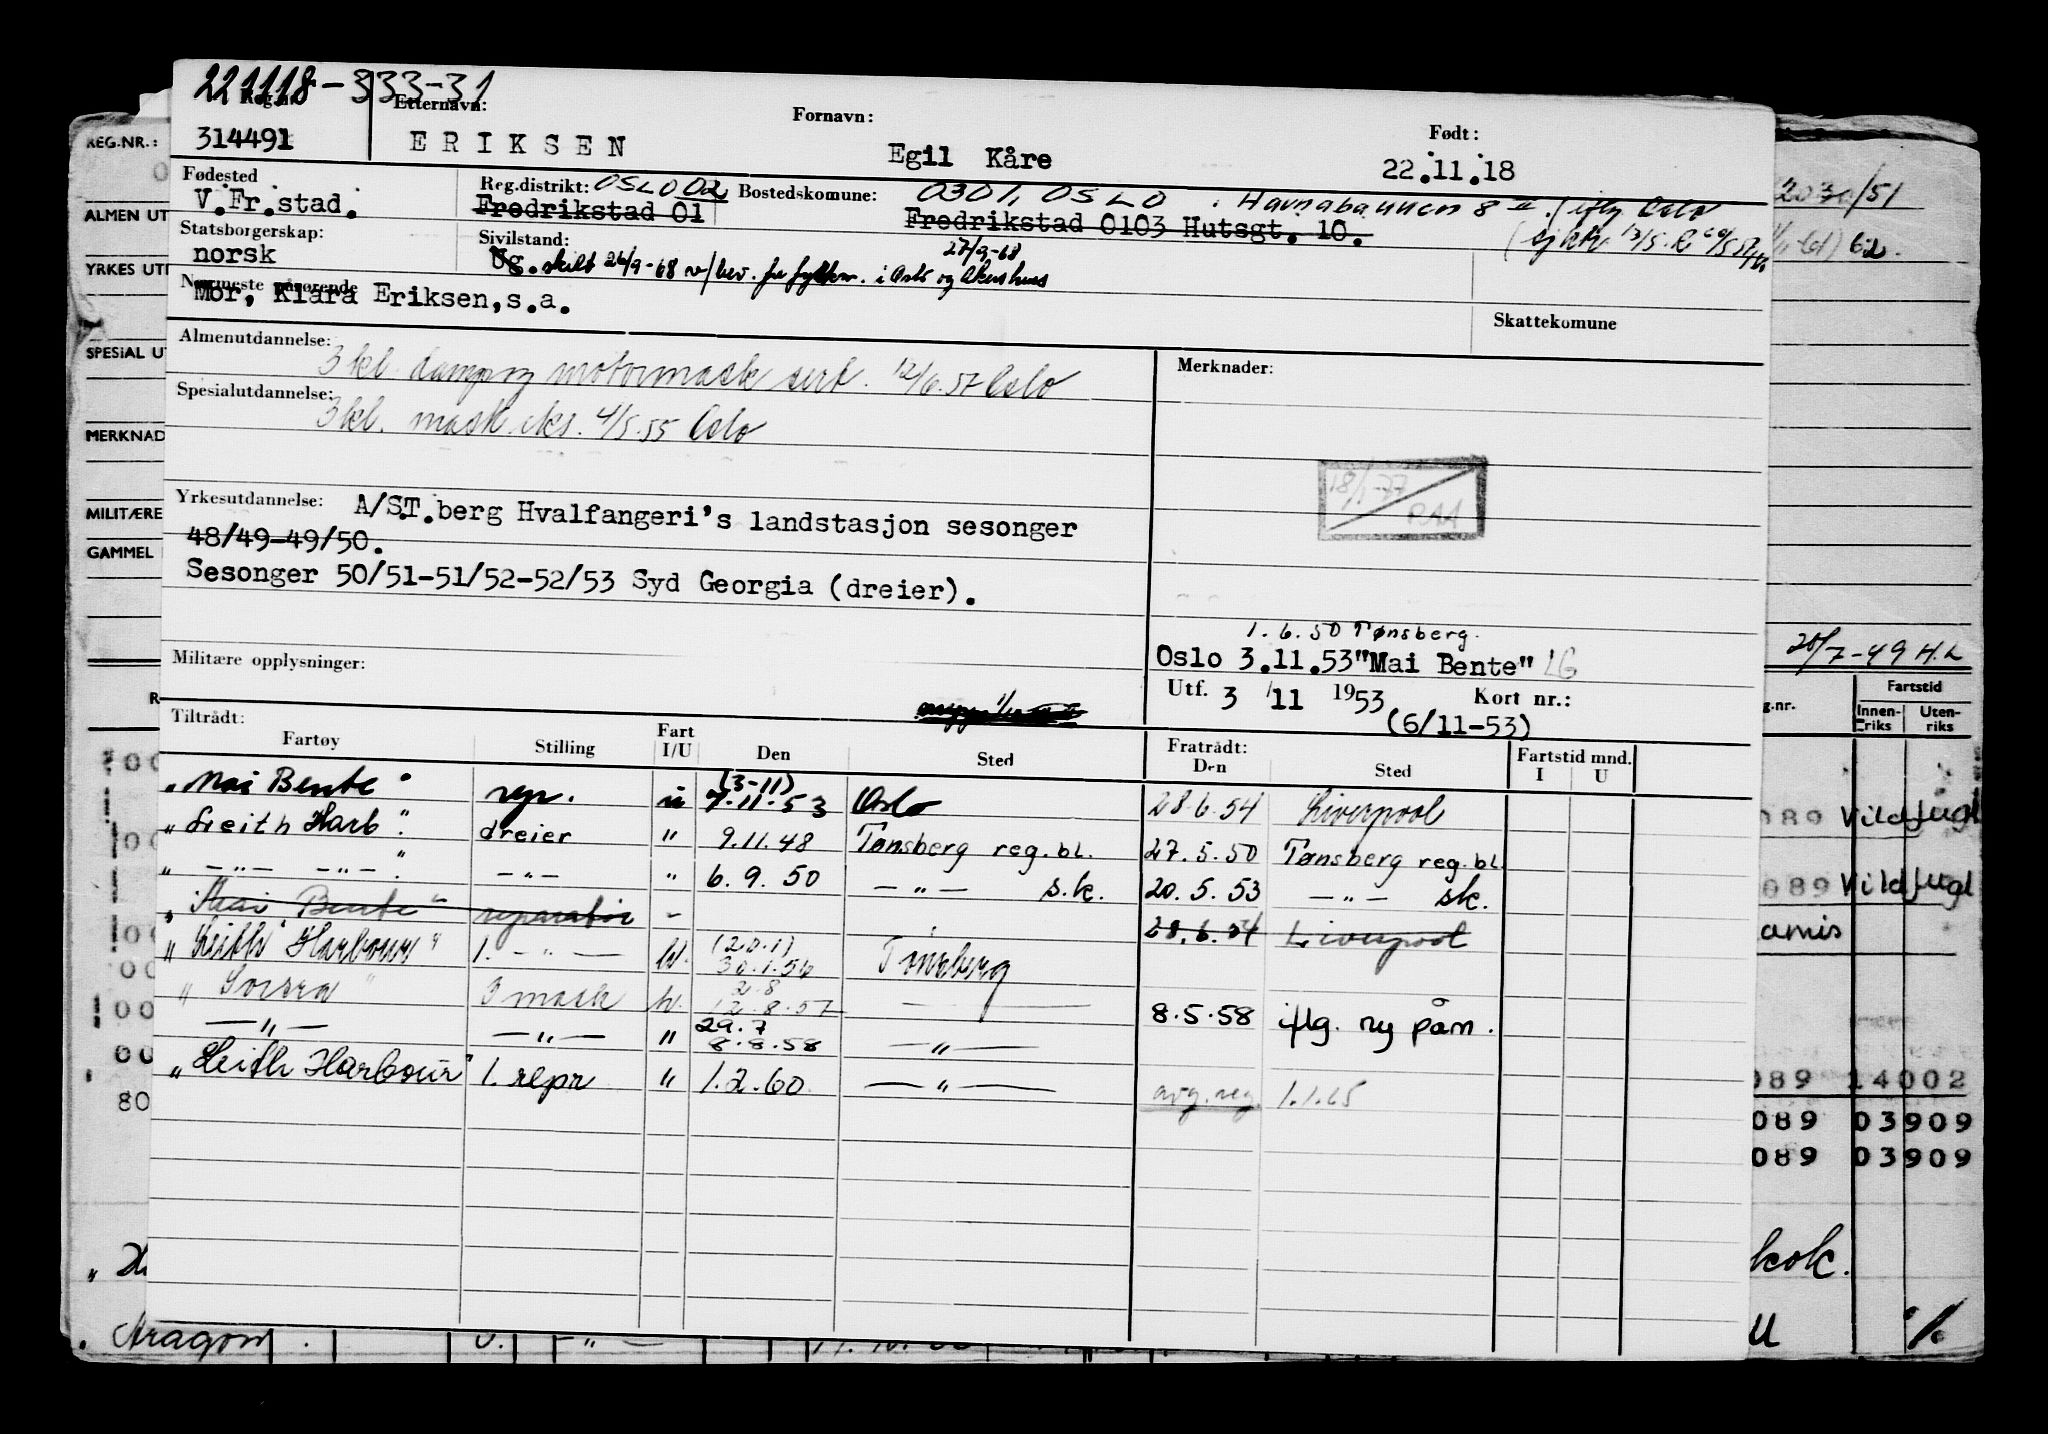 221118-333-31
Reg.nr. Etternavn: Fornavn: Født:
REG.NR.: 314491 ERIKSEN Egil Kåre 22.11.18
Fødested Reg.distrikt: OSLO 02 Bostedskomune: 0301, OSLO. Havnabakken 8 II. (iflg Oslo 2030/51
ALMEN UT V.Fr.stad. Fredrikstad 01 Fredrikstad 0103 Hutsgt. 10.
Statsborgerskap: Sivilstand: 27/9-68
YRKES UT norsk Ug. skilt 26/9-68 v/bev. fra fylkesm. i Oslo og Akershus
Nærmeste pårørende
Mor, Klara Eriksen,s.a.
Skattekomune
Almenutdannelse: 3 kl. damp og motormask sert. 12/6.57 Oslo Merknader:
SPESIAL UT
Spesialutdannelse: 3kl. mask.eks. 4/5.55 Oslo
MERKNAD
18/1-77
RAA
Yrkesutdannelse: A/S T.berg Hvalfangeri's landstasjon sesonger
MILITÆRE
48/49-49/50.
GAMMEL
Sesonger 50/51-51/52-52/53 Syd Georgia (dreier).
1.6.50 Tønsberg.
Militære opplysninger: Oslo 3.11.53 "Mai Bente" LG
20/7-49 H.L
Utf. 3/11 1953 Kort nr.:
(6/11-53)
Tiltrådt: Fratrådt: Fartstid mnd.
Fartøy Stilling Fart I/U Den Sted Den Sted I U
g.nr. Fartstid
Innen-riks Uten-riks
(3-11)
"Mai Bente" rep. u 7.11.53 Oslo 28.6.54 Liverpool
"Leith Harb". dreier " 9.11.48 Tønsberg reg.bl. 27.5.50 Tønsberg reg.bl.
089 Vildfugl
" -"- -"-". -"- " 6.9.50 -"- s.k. 20.5.53 -"- sk.
089 Vildfugl
"Mai Bente" reparatør - 28.6.54 Liverpool
amis
"Leith Harbour" 1. -"- U. (20.1) 30.1.56 Tønsberg
"Sorsra" 3 mask U. 2.8 12.8.57 8.5.58 iflg. ny påm.
-"- -"- " 29.7 8.8.58 -"-
"Leith Harbour" 1. repr " 1.2.60 -"- avg.reg. 1.1.65
089 14002
80
089 03909
089 03909
kok.
. Aragon . U. -"-